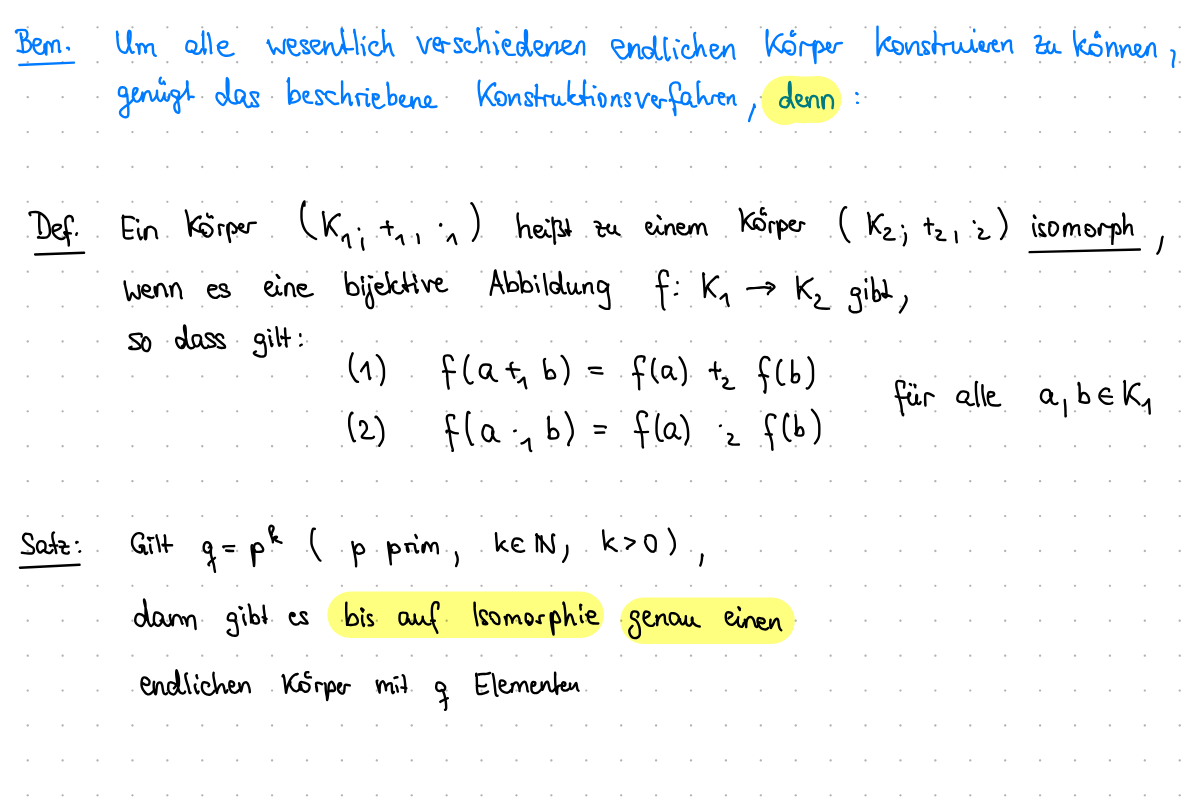 Bem. Um alle wesentlich verschiedenen endlichen Körper konstruieren zu können,
genügt das beschriebene Konstruktionsverfahren, denn :
Def. Ein Körper (K₁; +₁, ·₁) heißt zu einem Körper (K₂; +₂, ·₂) isomorph,
wenn es eine bijektive Abbildung f: K₁ → K₂ gibt,
so dass gilt:
(1) f(a +₁ b) = f(a) +₂ f(b)
für alle a, b ∈ K₁
(2) f(a ·₁ b) = f(a) ·₂ f(b)
Satz: Gilt q = pᵏ ( p prim, k ∈ ℕ, k > 0 ),
dann gibt es bis auf Isomorphie genau einen
endlichen Körper mit q Elementen